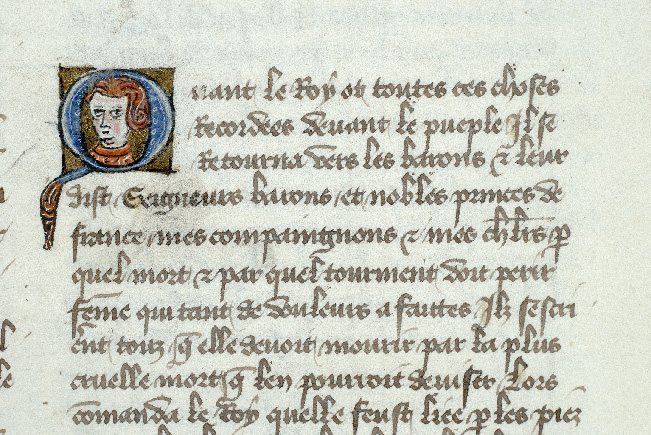 Quant le Roy ot toutes ces choses
Recordees deuant le pueple Il se
Retourna vers les barons & leur
dist Seigneurs barons et nobles princes de
france mes compaingnons & mes chlrs p
quel mort & par quel tourment doit perir
feme qui tant de douleurs a faittes Ilz sescri
ent touz q̃ elle deuoit mourir par la plus
cruelle mort q̃ len pourroit deuiser Lors
comanda le Roy quelle feust liee p les piez